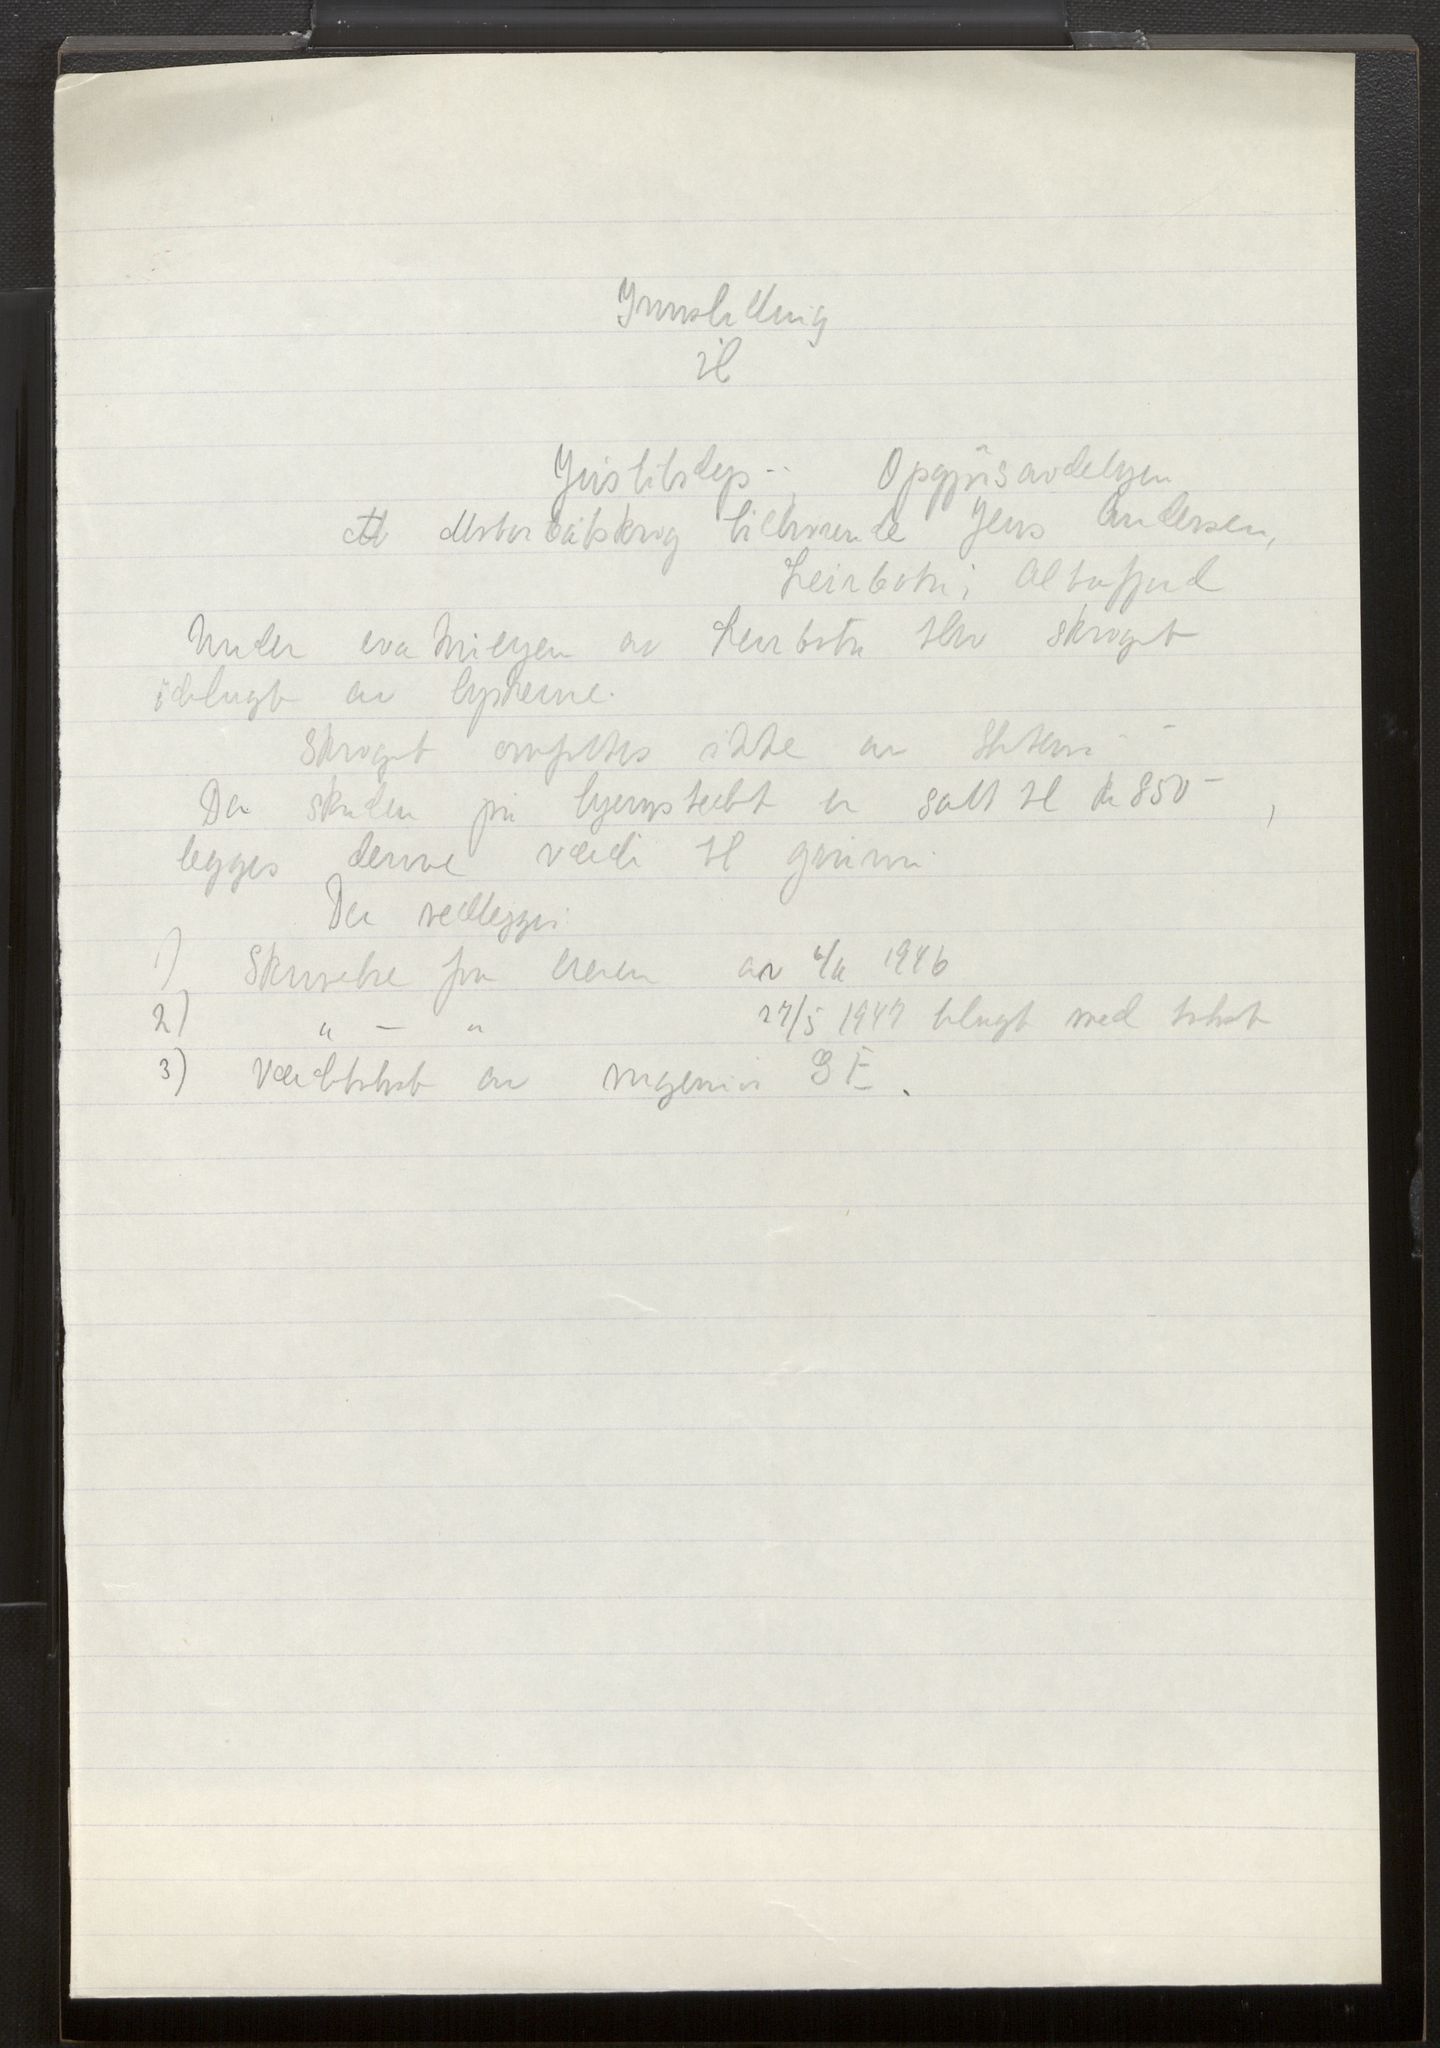 Innstilling
til
Justitsdep.. Opgjørsavdelingen
Motorbåtskrog tilhørende Jens Andersen,
Leirbotn i Altafjord
Under evakueringen av Leirbotn blev skroget
ødelagt av tyskerne.
Skroget omfattes ikke av
Da skaden på byggverket er satt til kr 850-,
legges denne verdi til grunn.
Der vedlegges:
1) Skrivelse fra eieren av 1946
2) " - " 27/5 1947 bilagt med takst
3) Verditakst av ingeniør S E.